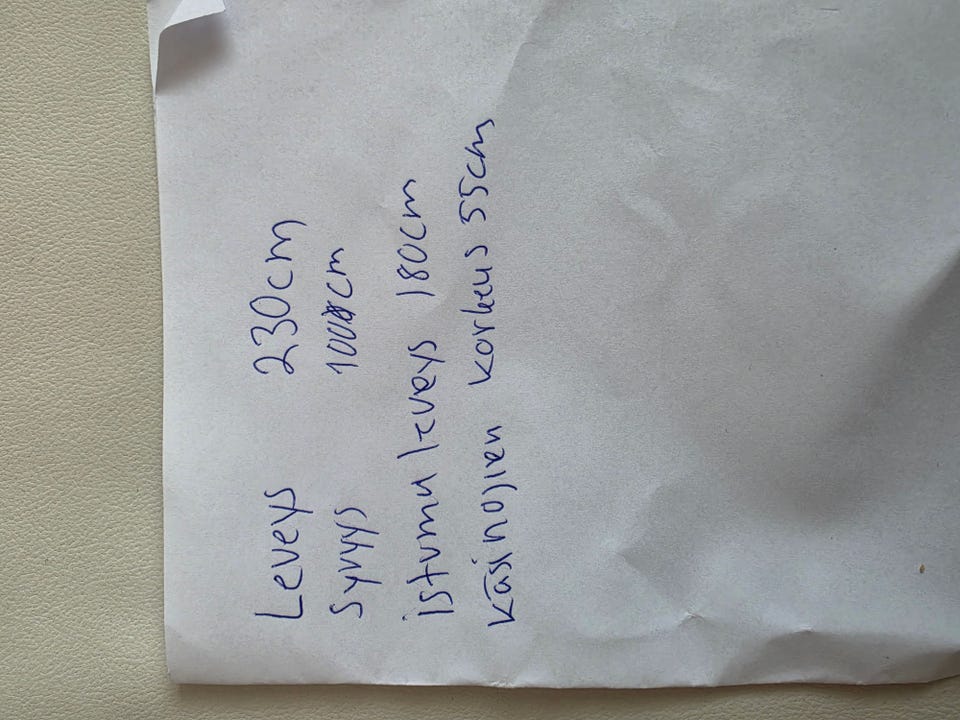 Leveys 230cm
Syvyys 100cm
istumu leveys 180cm
käsinojien korkeus 55cm